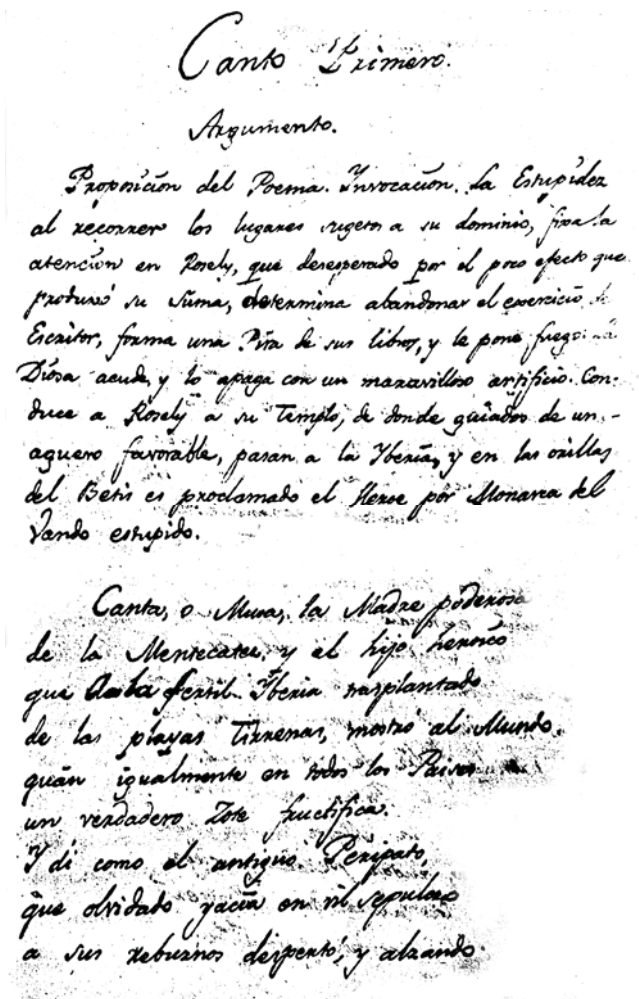 Canto Primero.
Argumento.
Proposición del Poema. Ynvocación. La Estupidez
al recorrer los lugares sugetos a su dominio, fixa la
atención en Rosely, que desesperado por el poco efecto que
produxo su Suma, determina abandonar el exercicio de
Escritor, forma una Pira de sus libros, y le pone fuego: la
Diosa acude, y lo apaga con un maravilloso artificio. Con-
duce a Rosely a su Templo, de donde guiados de un
aguero favorable, pasan a la Yberia, y en las orillas
del Betis es proclamado el Heroe por Monarca del
Vando estupido.
Canta, o Musa, la Madre poderosa
de la Mentecatez, y el hijo heroico
que a la fertil Yberia trasplantado
de las playas Tirrenas, mostró al Mundo
quán igualmente en todos los Paises
un verdadero Zote fructifica.
Y di como el antiguo Peripato,
que olvidado yacia en vil sepulcro
a sus rebuznos despertó, y alzando